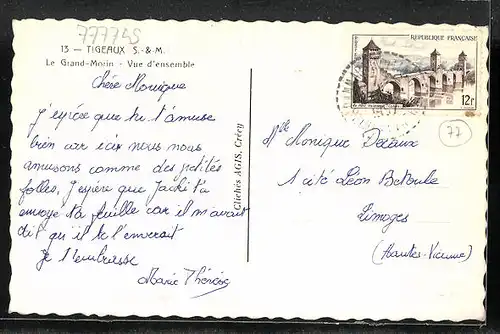 777745
13 — TIGEAUX S.-&-M.
Le Grand-Morin - Vue d'ensemble
Chère Monique
J'espère que tu t'amuse
bien car ici nous nous
amusons comme des petites
folles. J'espère que Jacki t'a
envoyé ta feuille car il m'avait
dit qu'il te l'enverrait
Je t'embrasse
Marie Thérèse
Clichés AGIS, Crécy
RÉPUBLIQUE FRANÇAISE
12F
77
Mlle Monique Decaux
1 cité Léon Betoulle
Limoges
(Hautes-Vienne)